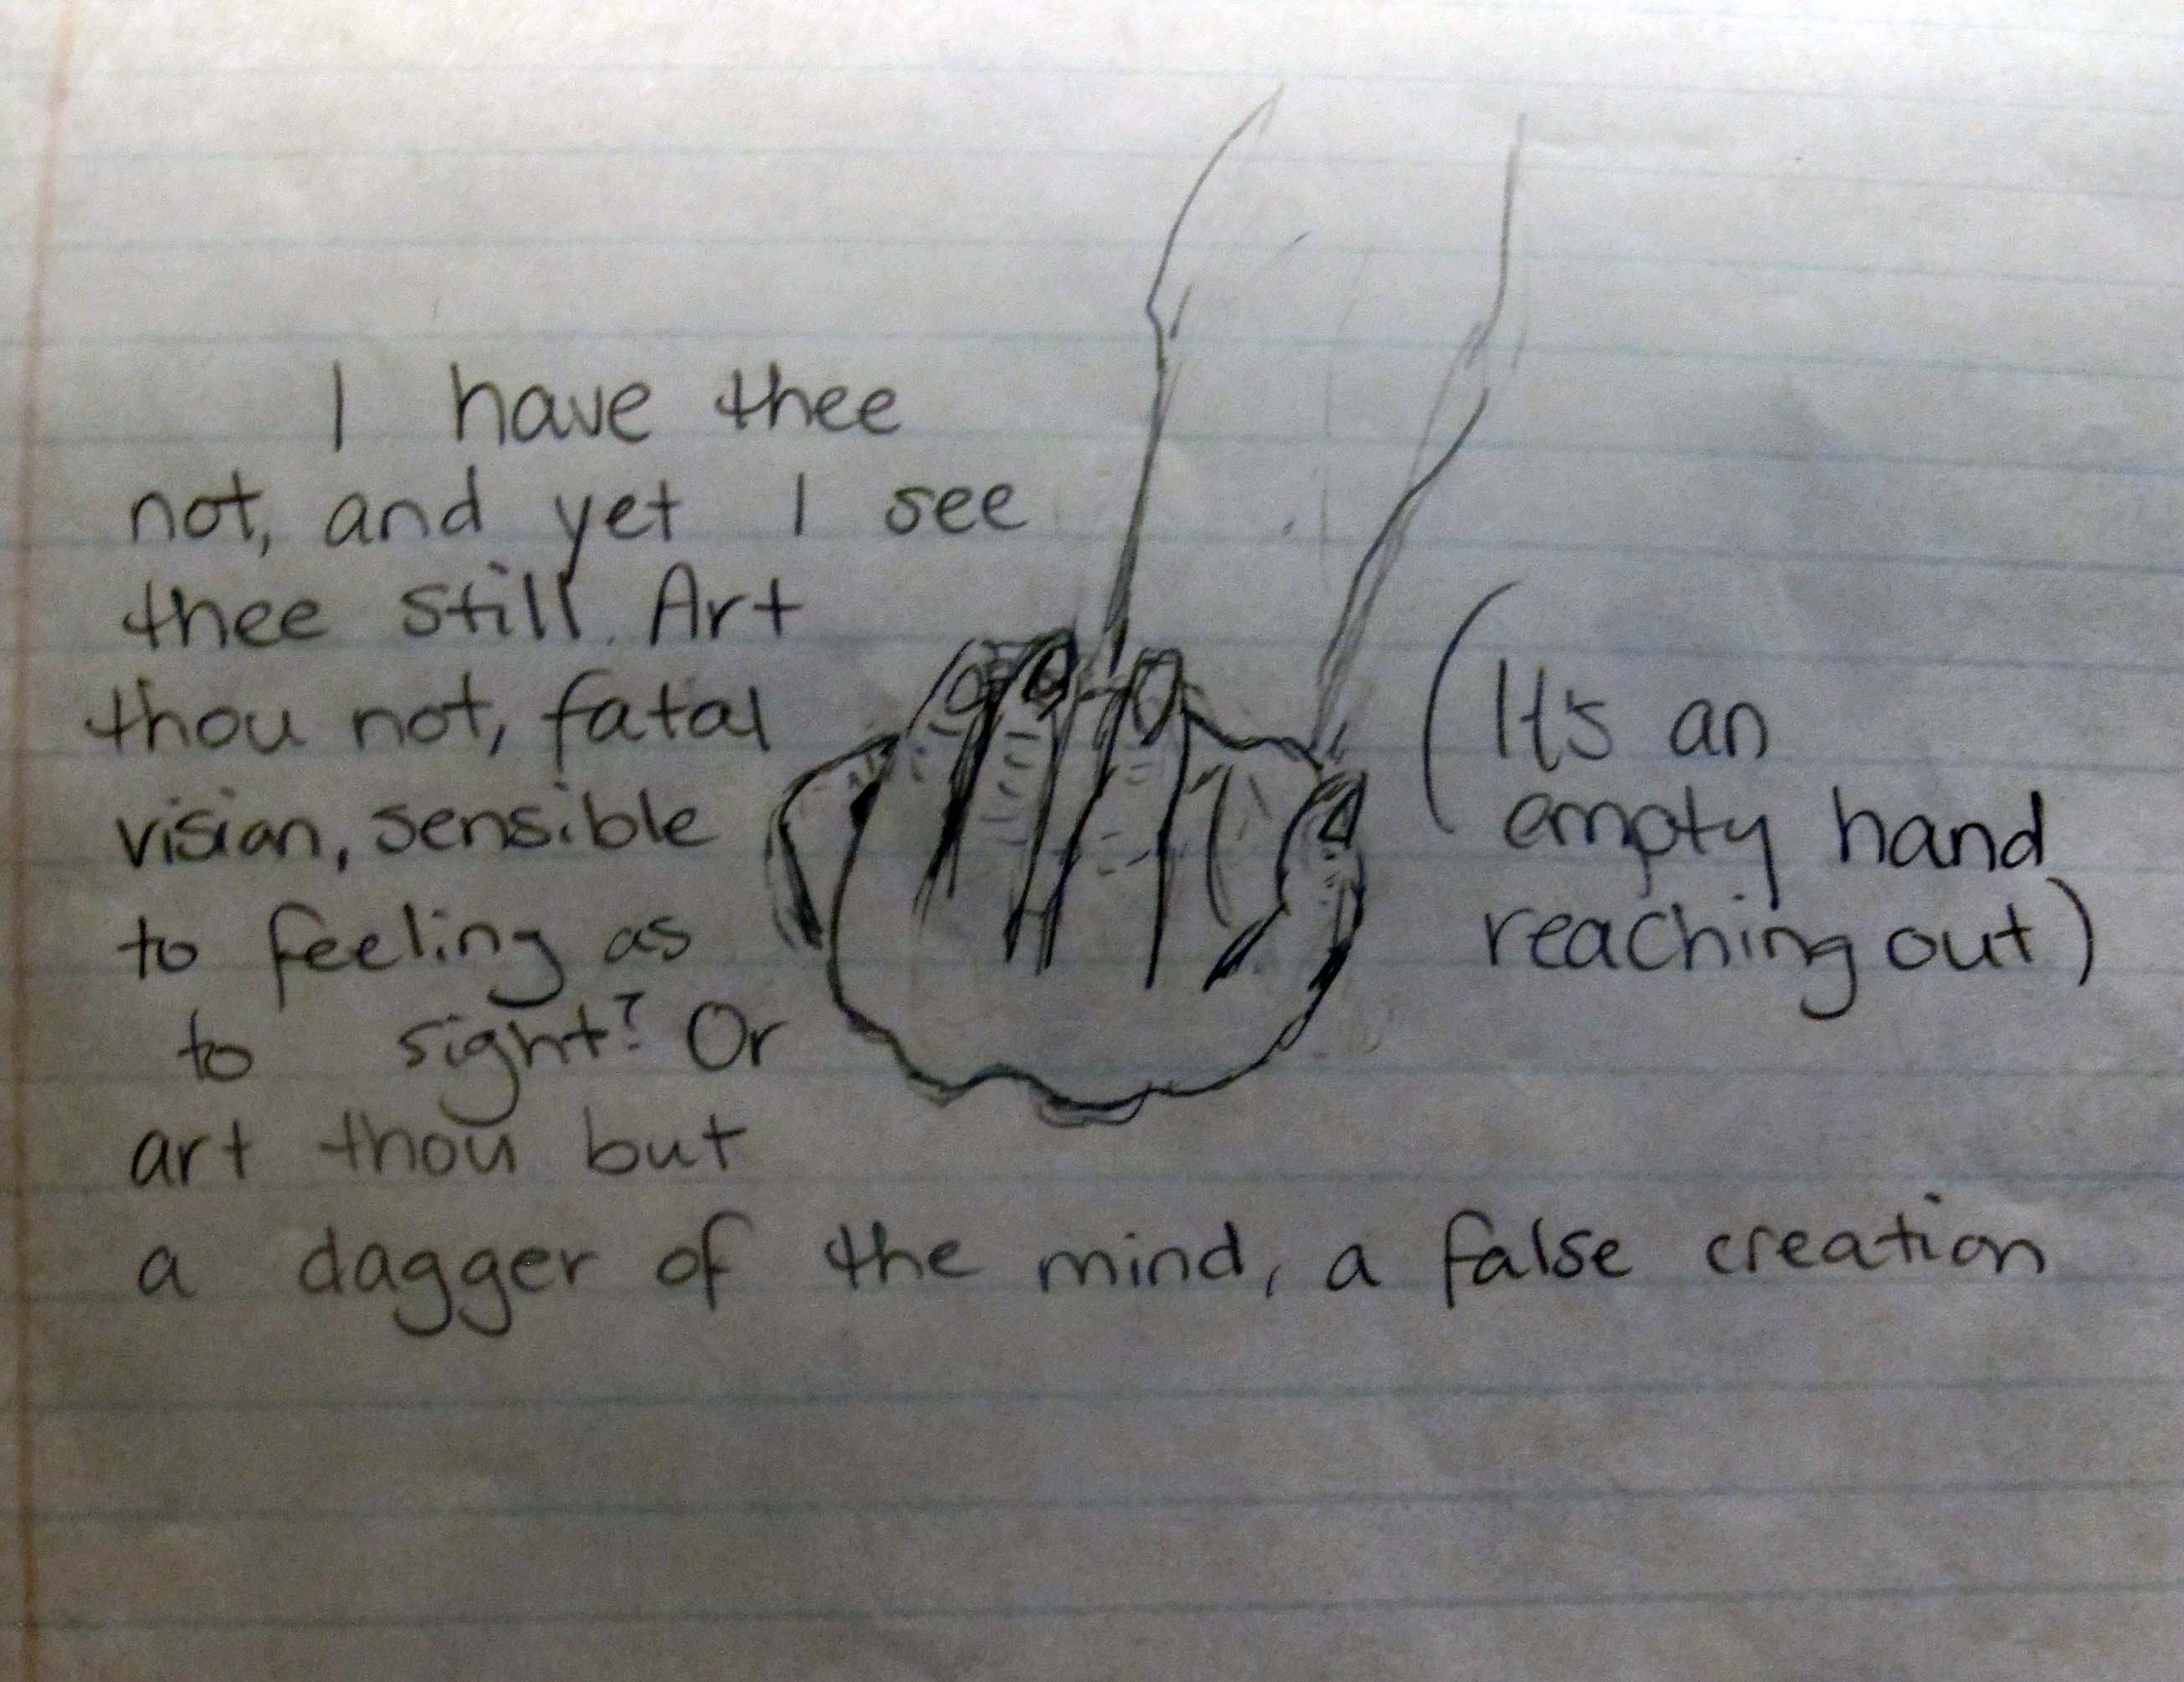 I have thee
not, and yet I see
thee still. Art
thou not, fatal
vision, sensible
to feeling as
to sight? Or
art thou but
a dagger of the mind, a false creation
(It's an
empty hand
reaching out)